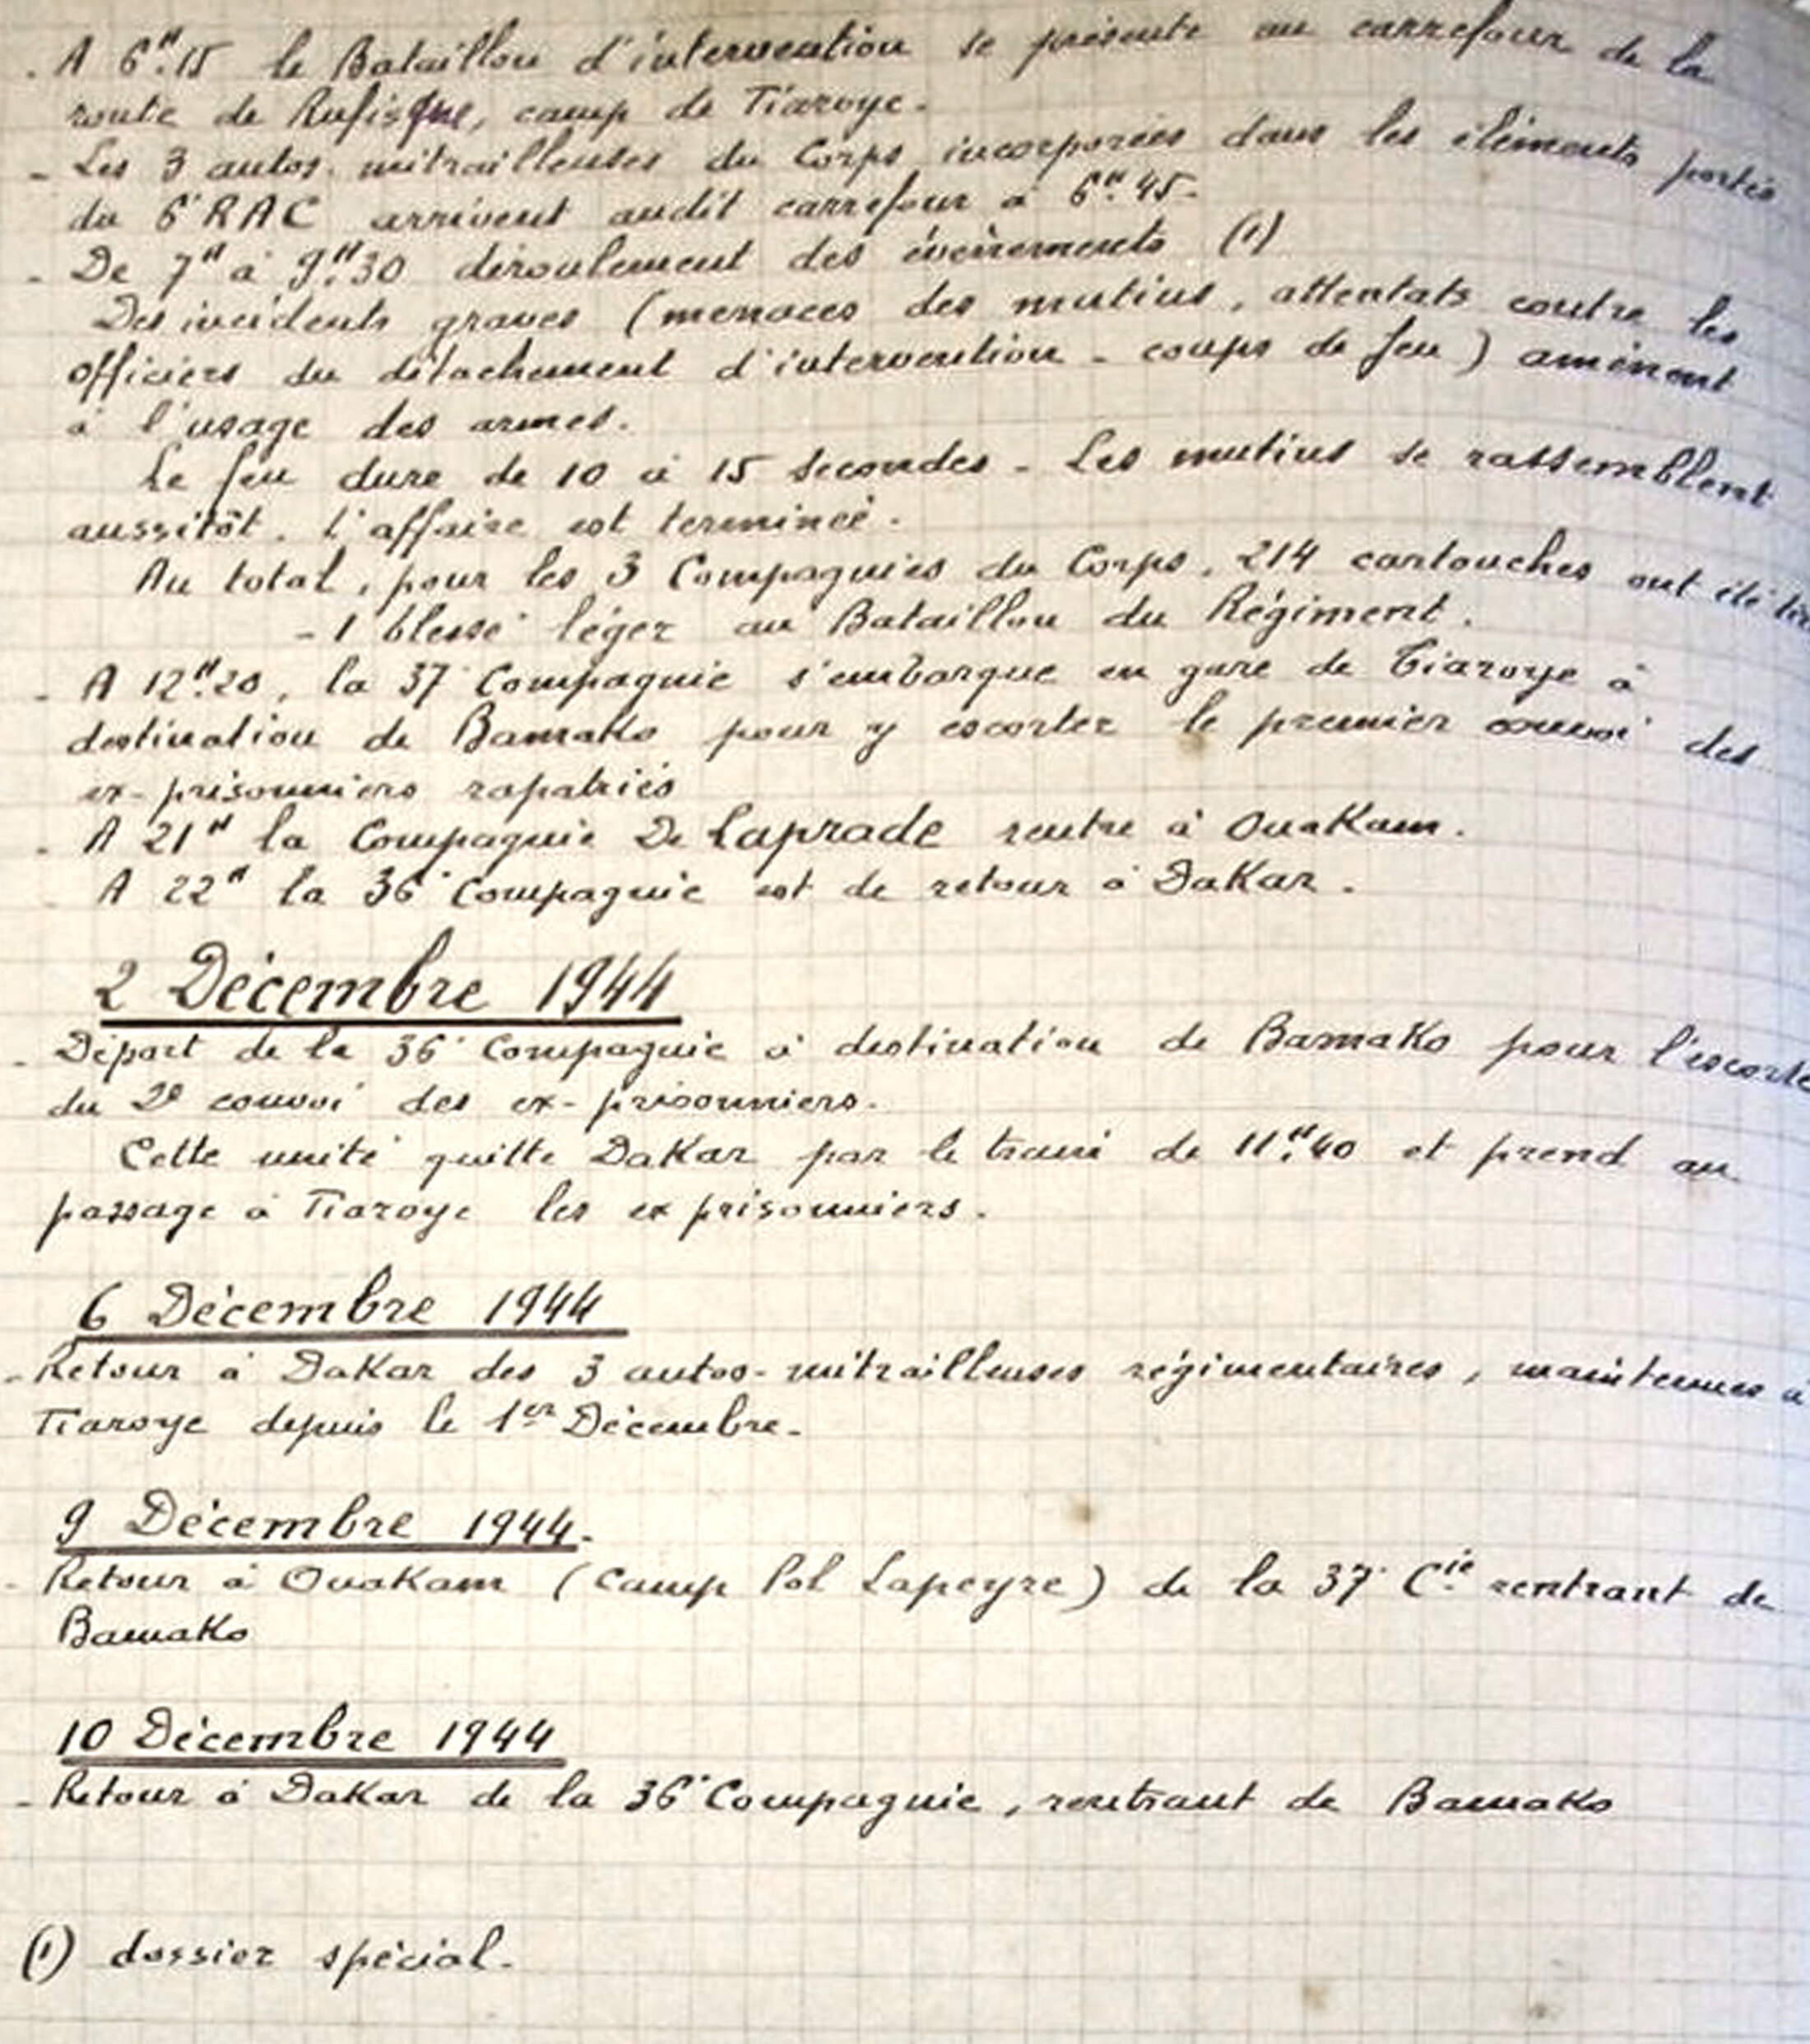 - A 6H.15 le Bataillon d'intervention se présente au carrefour de la
route de Rufisque, camp de Tiaroye.
- Les 3 autos-mitrailleuses du Corps, incorporées dans les éléments portés
du 6° RAC arrivent audit carrefour à 6H.45.
- De 7H à 9H.30 déroulement des évènements (1)
Des incidents graves (menaces des mutins, attentats contre les
officiers du détachement d'intervention - coups de feu) amènent
à l'usage des armes.
Le feu dure de 10 à 15 secondes - Les mutins se rassemblent
aussitôt. L'affaire est terminée.
Au total, pour les 3 Compagnies du Corps, 214 cartouches ont été
- 1 blessé léger au Bataillon du Régiment.
- A 12H.20, la 37° Compagnie s'embarque en gare de Tiaroye à
destination de Bamako pour y escorter le premier convoi des
ex-prisonniers rapatriés
- A 21H la Compagnie De Laprade rentre à Ouakam.
- A 22H la 36° Compagnie est de retour à Dakar.
2 Décembre 1944
- Départ de la 36° Compagnie à destination de Bamako pour l'escorte
du 2e convoi des ex-prisonniers.
Cette unité quitte Dakar par le train de 11H.40 et prend au
passage à Tiaroye les ex prisonniers.
6 Décembre 1944
- Retour à Dakar des 3 autos-mitrailleuses régimentaires, maintenues à
Tiaroye depuis le 1er Décembre.
9 Décembre 1944.
- Retour à Ouakam (Camp Pol Lapeyre) de la 37° Cie rentrant de
Bamako
10 Décembre 1944
- Retour à Dakar de la 36° Compagnie, rentrant de Bamako
(1) dossier spécial.